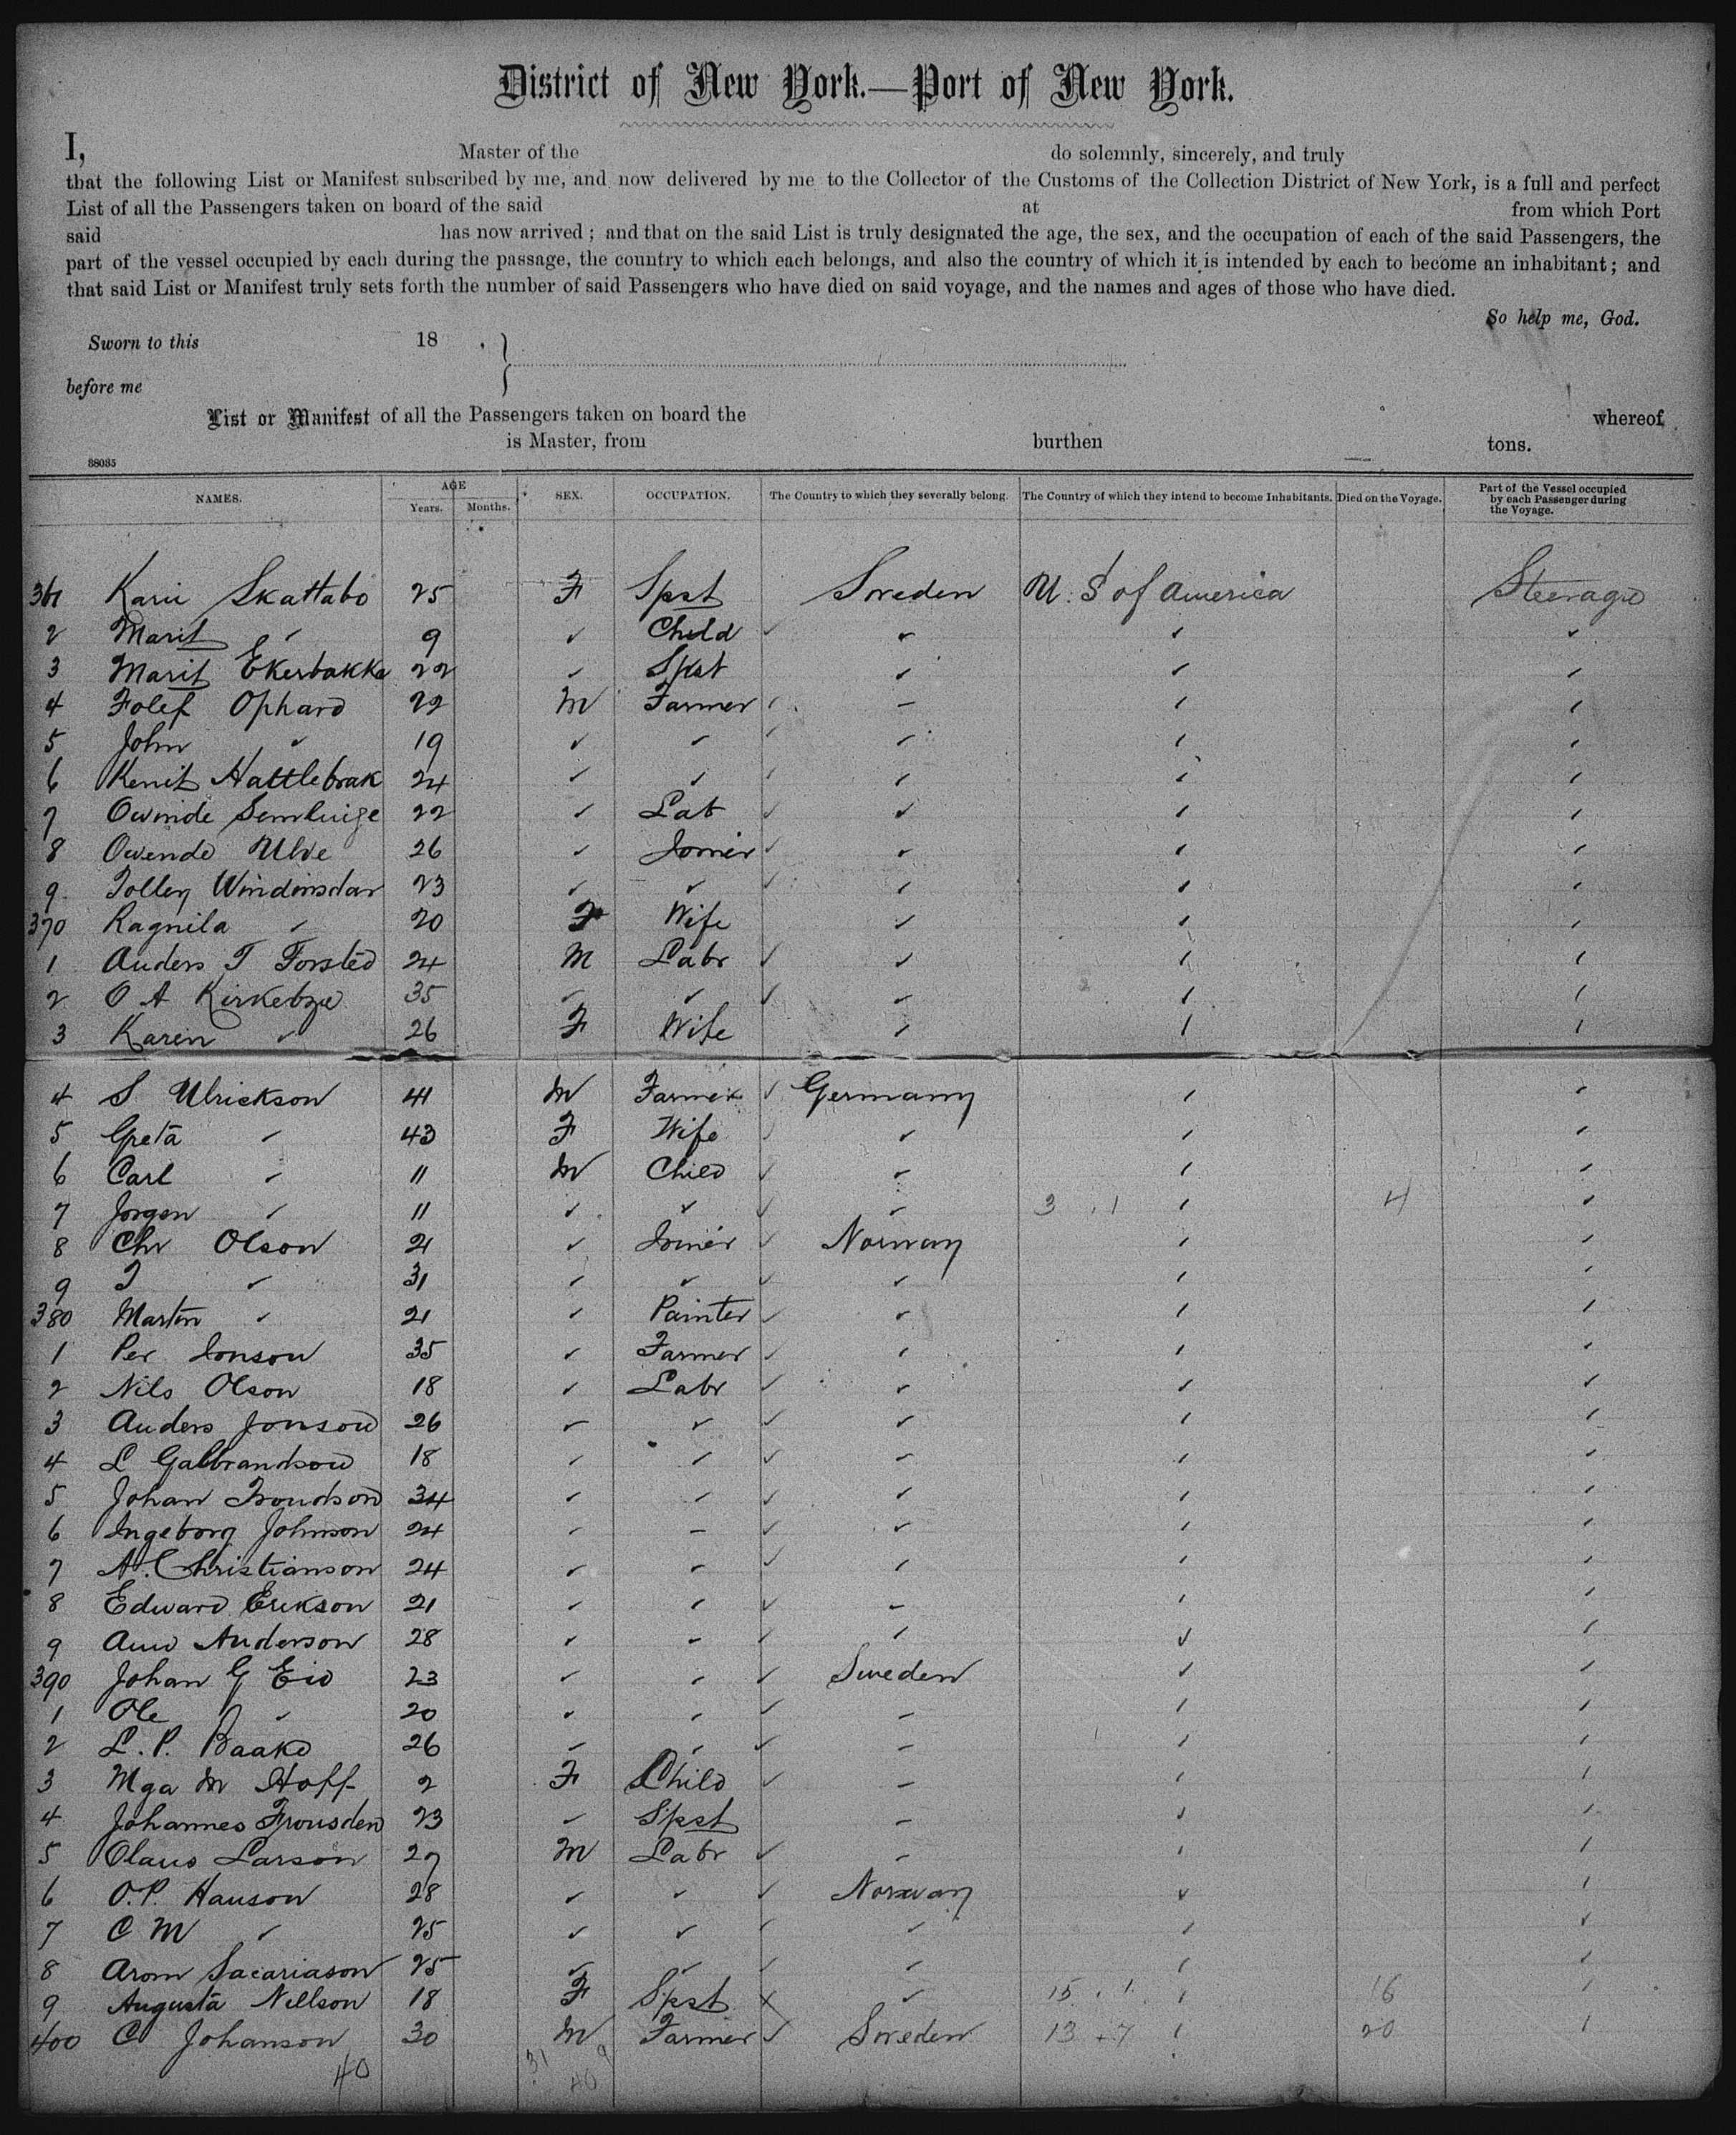 District of New York.—Port of New York.
I, Master of the do solemnly, sincerely, and truly
that the following List or Manifest subscribed by me, and now delivered by me to the Collector of the Customs of the Collection District of New York, is a full and perfect
List of all the Passengers taken on board of the said at from which Port
said has now arrived; and that on the said List is truly designated the age, the sex, and the occupation of each of the said Passengers, the
part of the vessel occupied by each during the passage, the country to which each belongs, and also the country of which it is intended by each to become an inhabitant; and
that said List or Manifest truly sets forth the number of said Passengers who have died on said voyage, and the names and ages of those who have died.
So help me, God.
Sworn to this 18 .
before me
List or Manifest of all the Passengers taken on board the whereof
is Master, from burthen tons.
38035
NAMES. AGE Years. Months. SEX. OCCUPATION. The Country to which they severally belong. The Country of which they intend to become Inhabitants. Died on the Voyage. Part of the Vessel occupied by each Passenger during the Voyage.
361 Kari Skattabo 25 F Spst Sweden U.S of America Steerage
2 Marit " 9 " Child " " "
3 Marit Ekerbakke 22 " Spst " " "
4 Folef Ophard 22 M Farmer " " "
5 John " 19 " " " " "
6 Kenit Hattlebrak 24 " " " " "
7 Owinde 22 " Lab " " "
8 Owende Ulve 26 " Joiner " " "
9 Tolley Windinsdar 23 " " " " "
370 Ragnila " 20 F Wife " " "
1 Anders T Forsted 24 M Labr " " "
2 O A Kirkebye 35 " " " " "
3 Karen " 26 F Wife " " "
4 S Ulrickson 41 M Farmer Germany " "
5 Greta " 43 F Wife " " "
6 Carl " 11 M Child " " "
7 Jorgen " 11 " " " 3 . 1 " 4 "
8 Chr Olson 21 " Joiner Norway " "
9 T " 31 " " " " "
380 Martin " 21 " Painter " " "
1 Per Jonson 35 " Farmer " " "
2 Nils Olson 18 " Labr " " "
3 Anders Jonson 26 " " " " "
4 L Galbrandson 18 " " " " "
5 Johan Trondson 34 " " " " "
6 Ingeborg Johnson 24 " " " " "
7 A. Christianson 24 " " " " "
8 Edward Erikson 21 " " " " "
9 Anderson 28 " " " " "
390 Johan G Eid 23 " " Sweden " "
1 Ole " 20 " " " " "
2 L. P. Baake 26 " " " " "
3 Mga M Hoff 2 F Child " " "
4 Johannes 23 " Spst " " "
5 Olaus Larson 27 M Labr " " "
6 O.P. Hanson 28 " " Norway " "
7 C M " 25 " " " " "
8 Arom Sacariason 25 " " " " "
9 Augusta Nellson 18 F Spst " 15 . 1 " 16 "
400 C Johanson 30 M Farmer Sweden 13 + 7 " 20 "
40 31 9
40